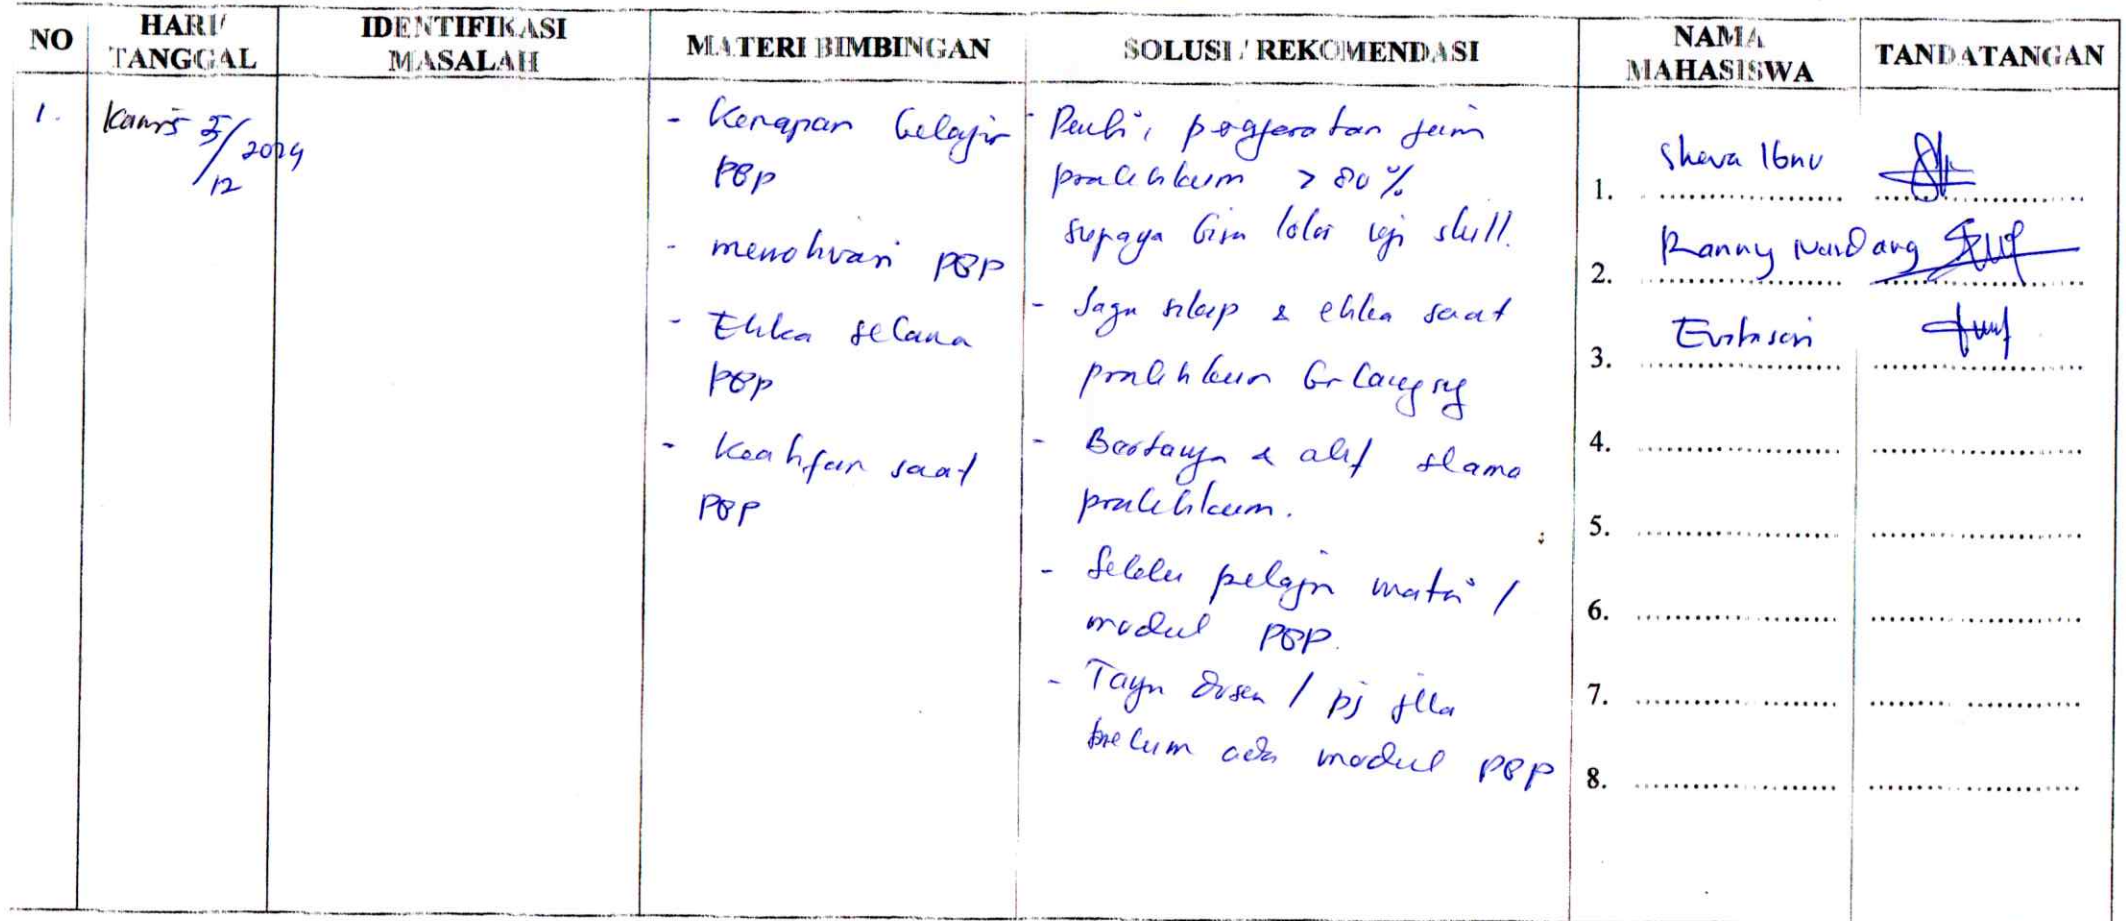 NO
HARI/
TANGGAL
IDENTIFIKASI
MASALAH
MATERI BIMBINGAN
SOLUSI / REKOMENDASI
NAMA
MAHASISWA
TANDATANGAN
1.
Kamis 5/12 2024
- belajar
PBP
- PBP
- Etika selama
PBP
- Keaktifan saat
PBP
praktikum > 80%
supaya bisa lolos uji skill.
- Jaga sikap & etika saat
praktikum berlangsung
- Bertanya & aktif selama
praktikum.
- Selalu pelajari materi /
modul PBP.
- Tanya dosen / pj jika
belum ada modul PBP
1. Sheva Ibnu
2. Ranny
3.
4.
5.
6.
7.
8.